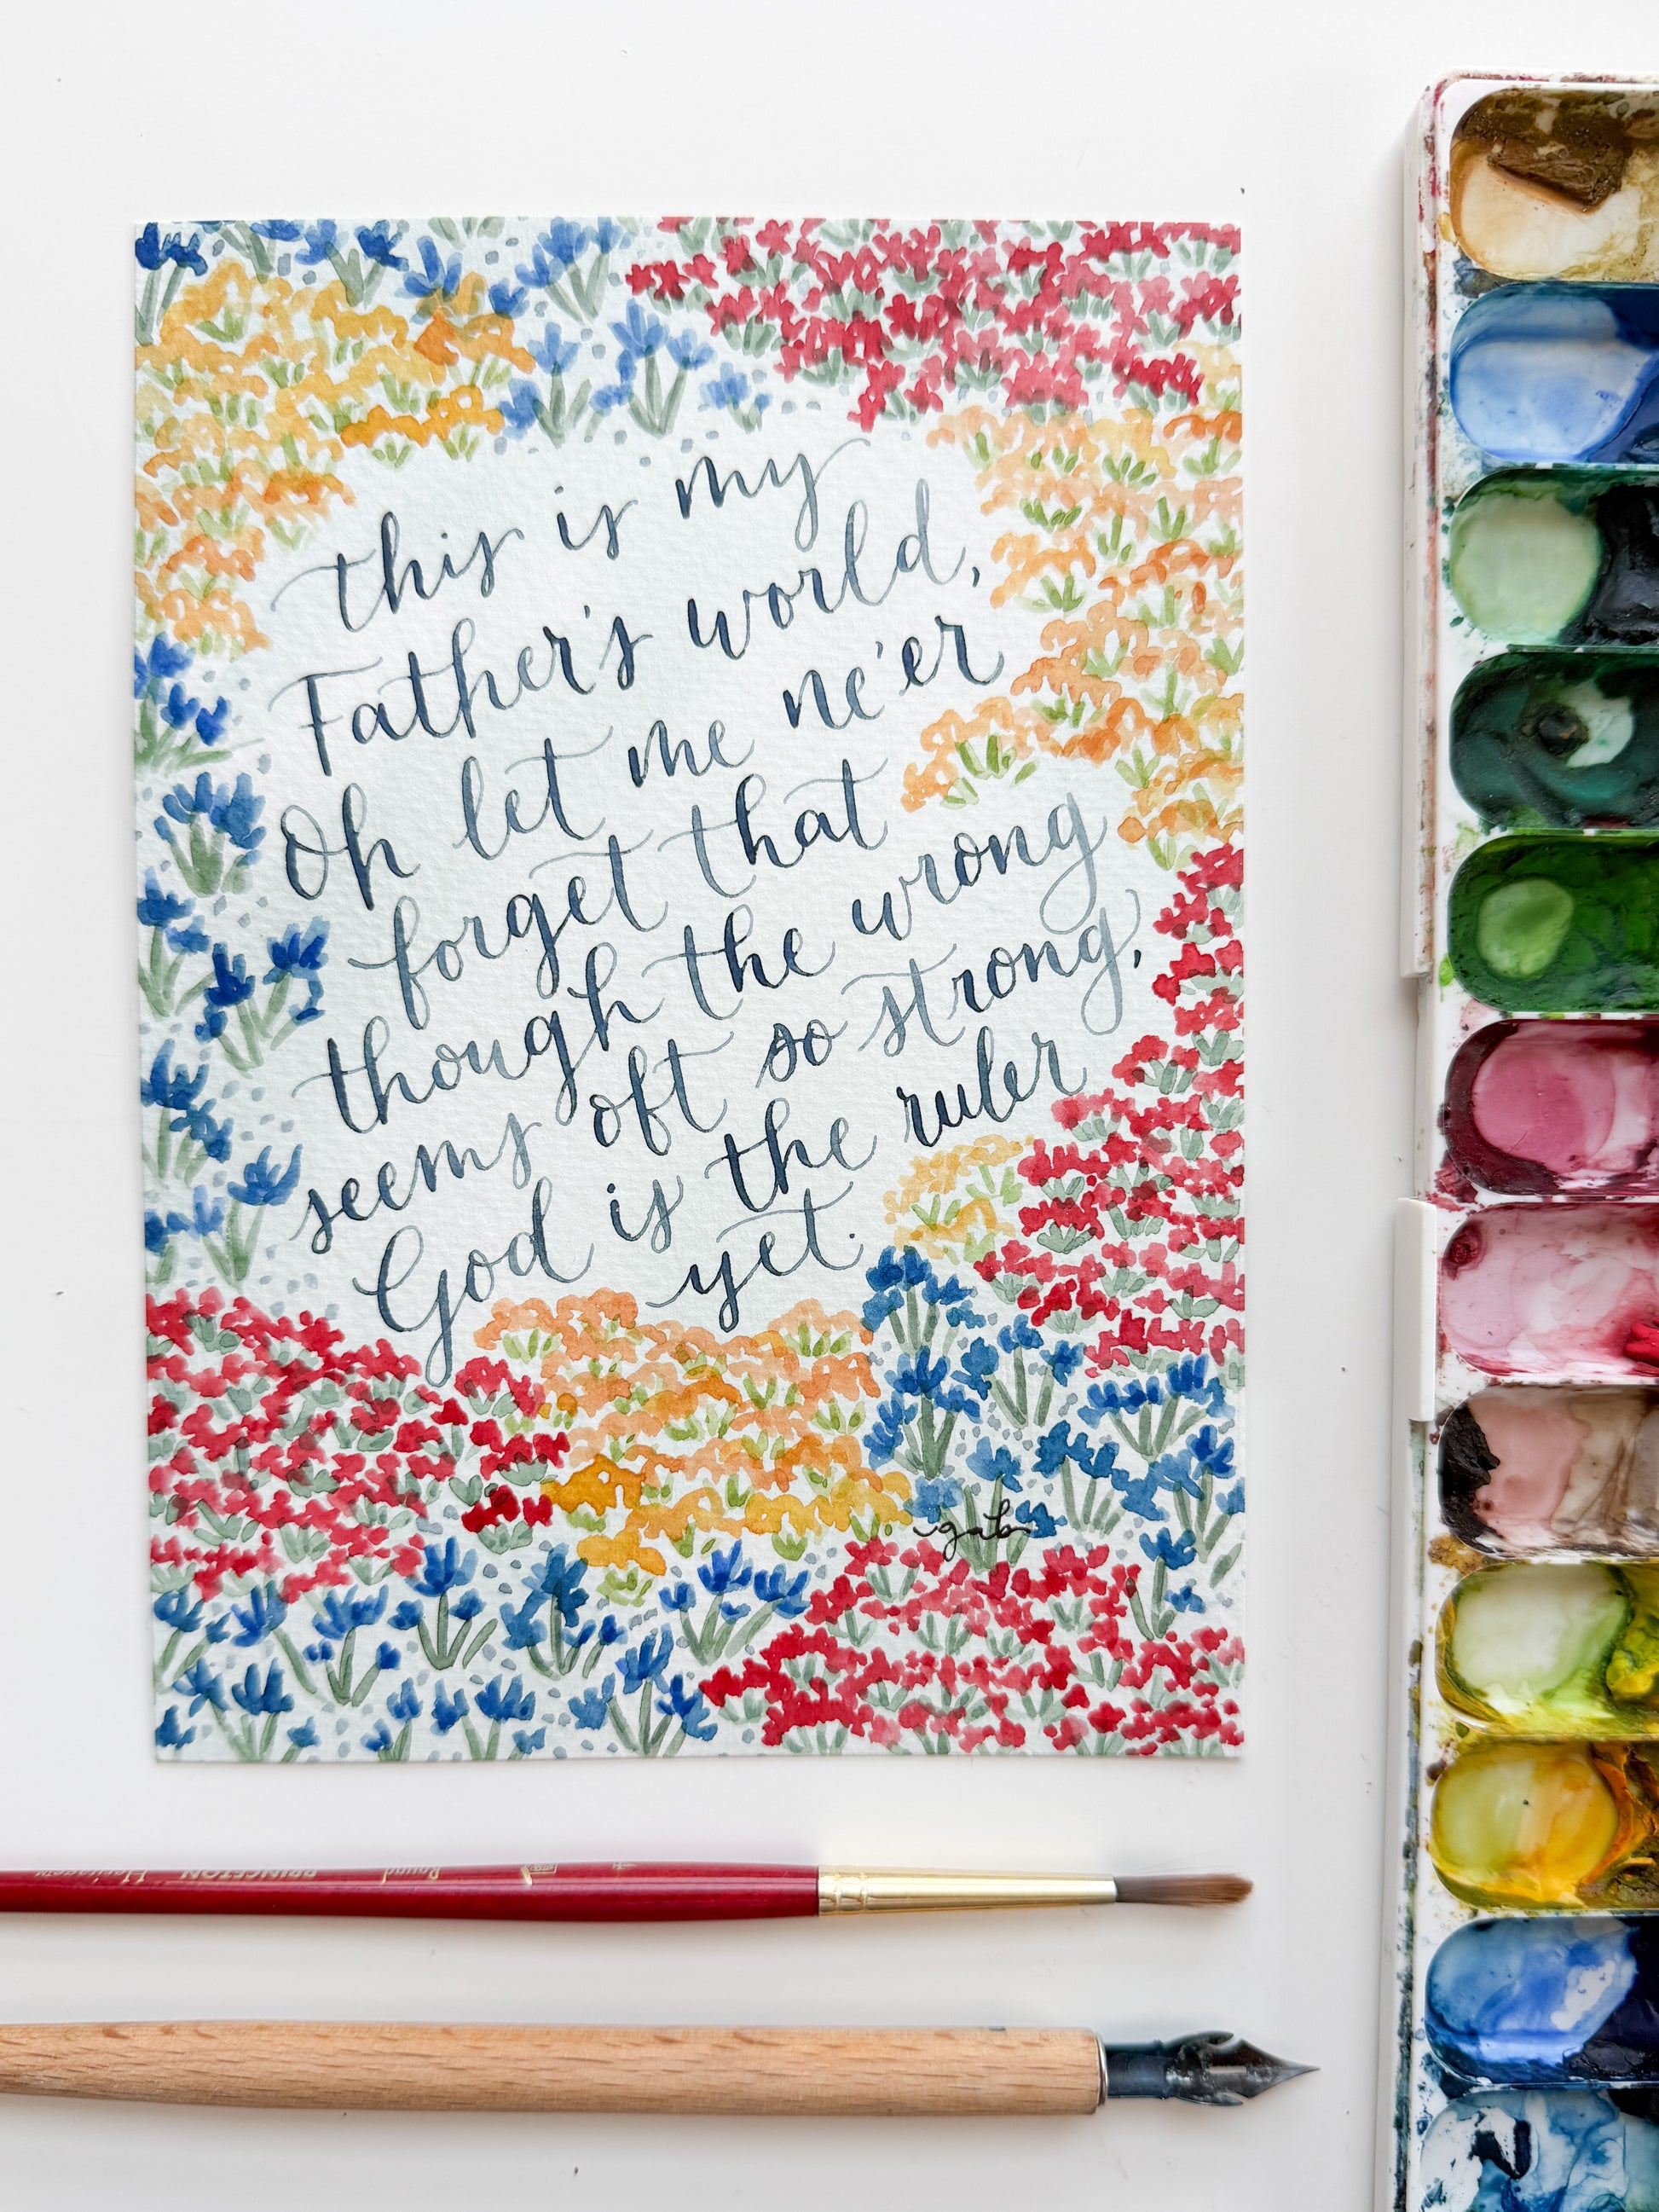 this is my
Father's world,
Oh let me ne'er
forget that
though the wrong
seems oft so strong,
God is the ruler
yet.
gab
4 Round PRINCETON Heritage™